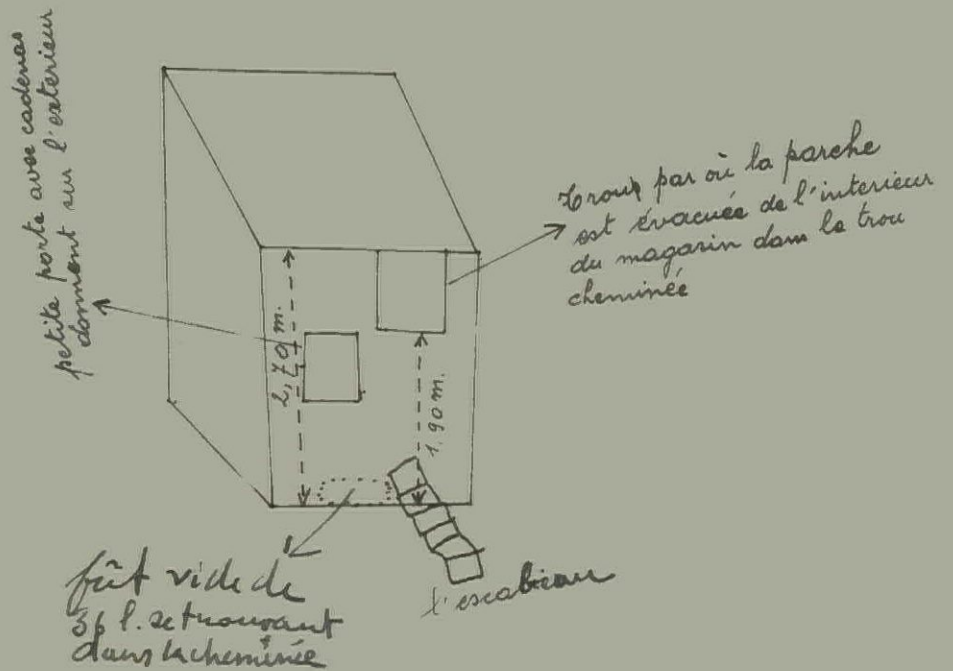 petite porte avec cadenas
donnant sur l'exterieur
Trous par où la parche
est évacuée de l'interieur
du magasin dans le trou
cheminée
2,70 m.
1,90 m.
fût vide de
l. se trouvant
dans la cheminée
l'escabeau